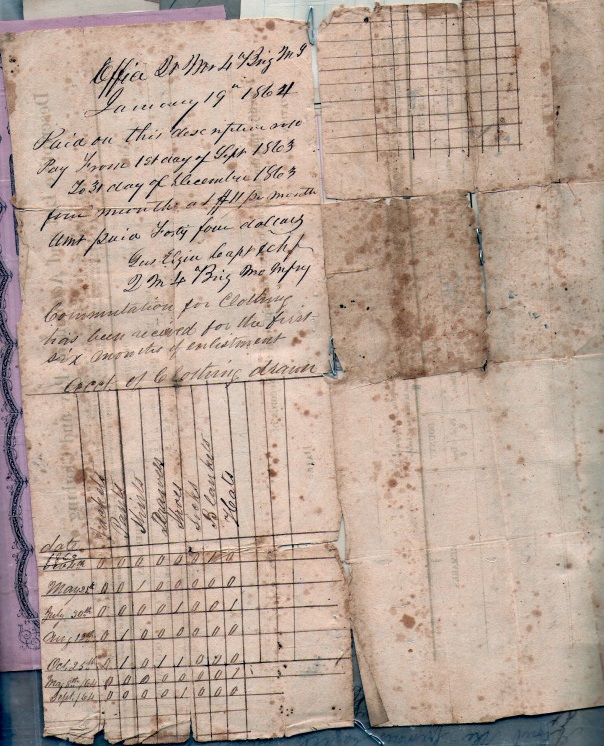 Office Qr Mrs 4th Brig M G
January 19th 1864
Paid on this descriptive role
Pay From 1st day of Sept 1863
To 31 day of December 1863
four months at $11 pr month
Amt paid Forty four dollars
Gus Elgin Capt & chf
Q M 4 Brig Mo Infry
Commutation for Clothing
has been received for the first
six months of enlistment
acct of Clothing drawn
date Jackets Pants Shirts Drawers Shoes Socks Blankets Hats
1863
0 0 0 0 0 0 1 0
May 0 0 1 0 0 0 0 0
July 30th 0 0 0 0 1 0 0 1
Aug 0 1 0 0 0 0 0 0
Oct 25th 0 1 0 1 1 0 0
May /64 0 0 0 0 0 0 0 1
Sept /64 0 0 0 0 1 0 0 0